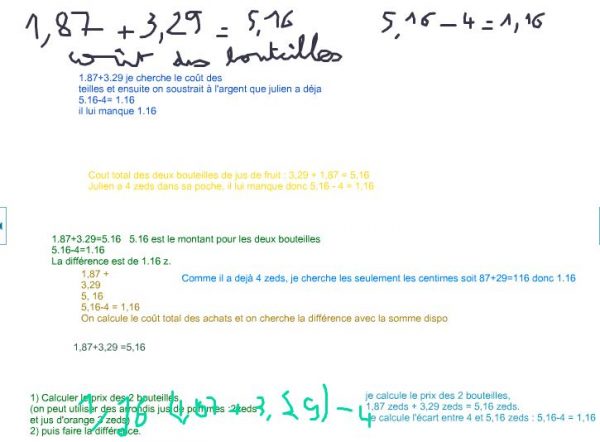 1,87 + 3,29 = 5,16
5,16 - 4 = 1,16
coût des bouteilles
1.87+3.29 je cherche le coût des
teilles et ensuite on soustrait à l'argent que julien a déja
5.16-4= 1.16
il lui manque 1.16
Cout total des deux bouteilles de jus de fruit : 3,29 + 1,87 = 5,16
Julien a 4 zeds dans sa poche, il lui manque donc 5,16 - 4 = 1,16
1.87+3.29=5.16 5.16 est le montant pour les deux bouteilles
5.16-4=1.16
La différence est de 1.16 z.
1,87 +
3,29
5, 16
5,16-4 = 1,16
On calcule le coût total des achats et on cherche la différence avec la somme dispo
Comme il a dejà 4 zeds, je cherche les seulement les centimes soit 87+29=116 donc 1.16
1,87+3,29 =5,16
1) Calculer le prix des 2 bouteilles
(on peut utiliser des arrondis jus de pommes :2zeds
et jus d'orange 3 zeds)
2) puis faire la différence.
+ 3, 29) - 4
je calcule le prix des 2 bouteilles,
1.87 zeds + 3,29 zeds = 5,16 zeds.
je calcule l'écart entre 4 et 5,16 zeds : 5,16-4 = 1,16